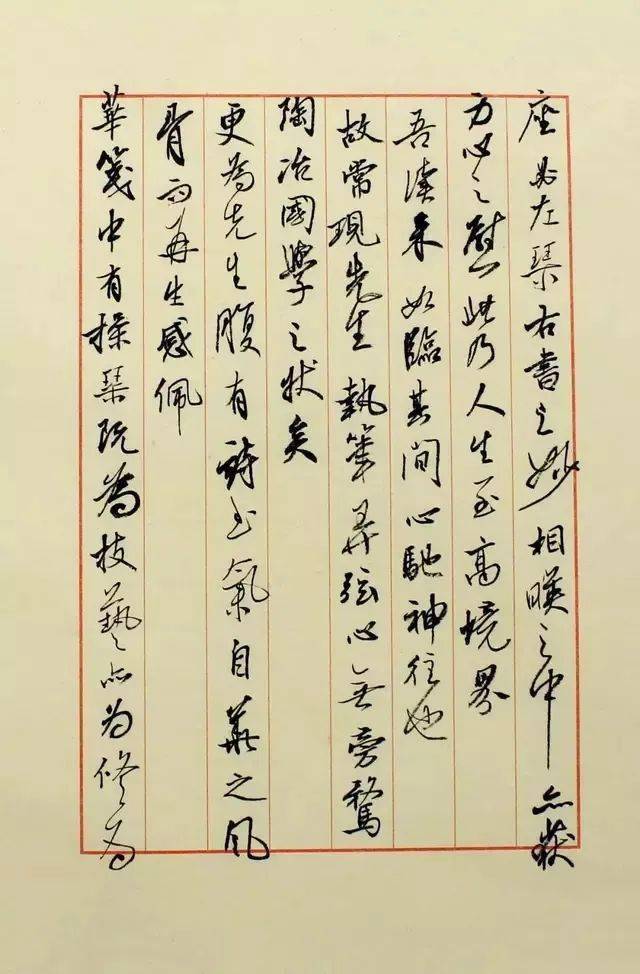 座必左琴右書之妙相映之中亦獲
方心之慰此乃人生至高境界
吾讀來如臨其間心馳神往也
故常現先生執筆弄弦心無旁騖
陶冶國學之狀矣
更為先生腹有詩書氣自華之風
骨而再生感佩
華箋中有操琴既為技藝亦為修為